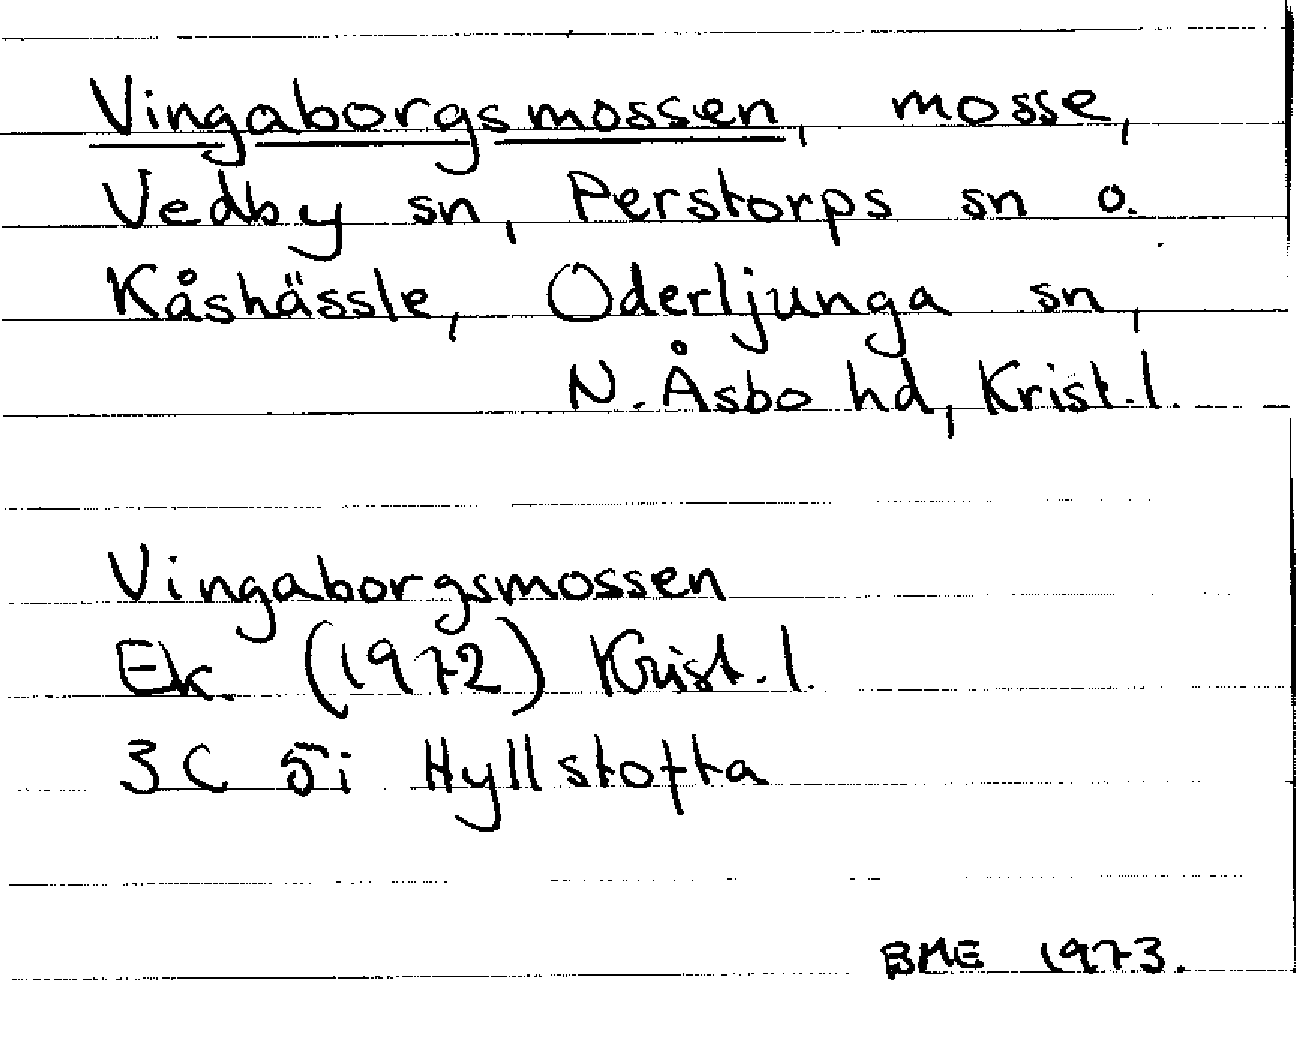 Vingaborgsmossen, mosse,
Vedby sn, Perstorps sn o.
Kåshässle, Oderljunga sn,
N. Åsbo hd, Krist. l.
Vingaborgsmossen
Ek (1972) Krist. l.
3C 5i Hyllstofta
BME 1973.